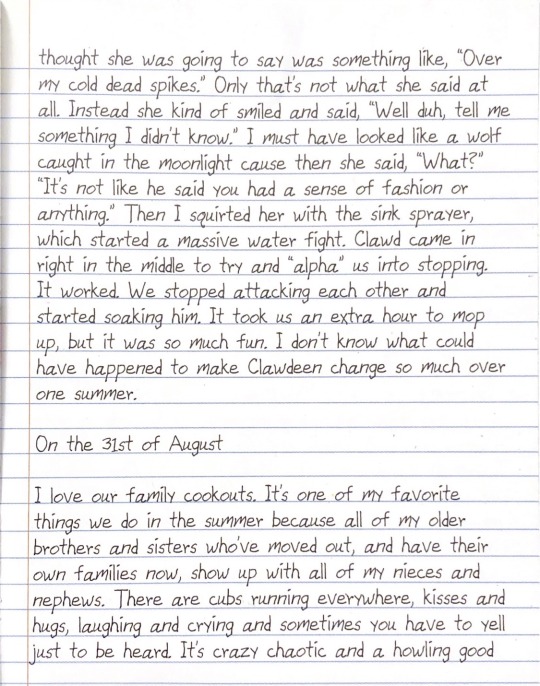 thought she was going to say was something like, "Over
my cold dead spikes." Only that's not what she said at
all. Instead she kind of smiled and said, "Well duh, tell me
something I didn't know." I must have looked like a wolf
caught in the moonlight cause then she said, "What?"
"It's not like he said you had a sense of fashion or
anything." Then I squirted her with the sink sprayer,
which started a massive water fight. Clawd came in
right in the middle to try and "alpha" us into stopping.
It worked. We stopped attacking each other and
started soaking him. It took us an extra hour to mop
up, but it was so much fun. I don't know what could
have happened to make Clawdeen change so much over
one summer.
On the 31st of August
I love our family cookouts. It's one of my favorite
things we do in the summer because all of my older
brothers and sisters who've moved out, and have their
own families now, show up with all of my nieces and
nephews. There are cubs running everywhere, kisses and
hugs, laughing and crying and sometimes you have to yell
just to be heard. It's crazy chaotic and a howling good